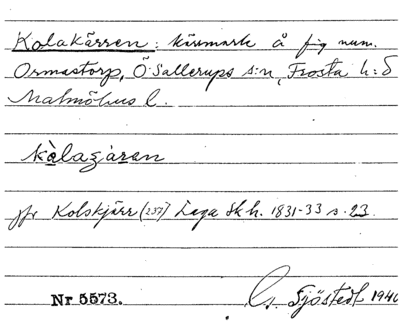 Kolakärren: kärrmark å fig num.
Ormastorp, Ö. Sallerups s:n, Frosta h:d
Malmöhus l.
kòlaʒàren
jfr Kolskjärr (237) Laga sk h. 1831-33 s. 23.
Nr 5573. Sjöstedt 1946